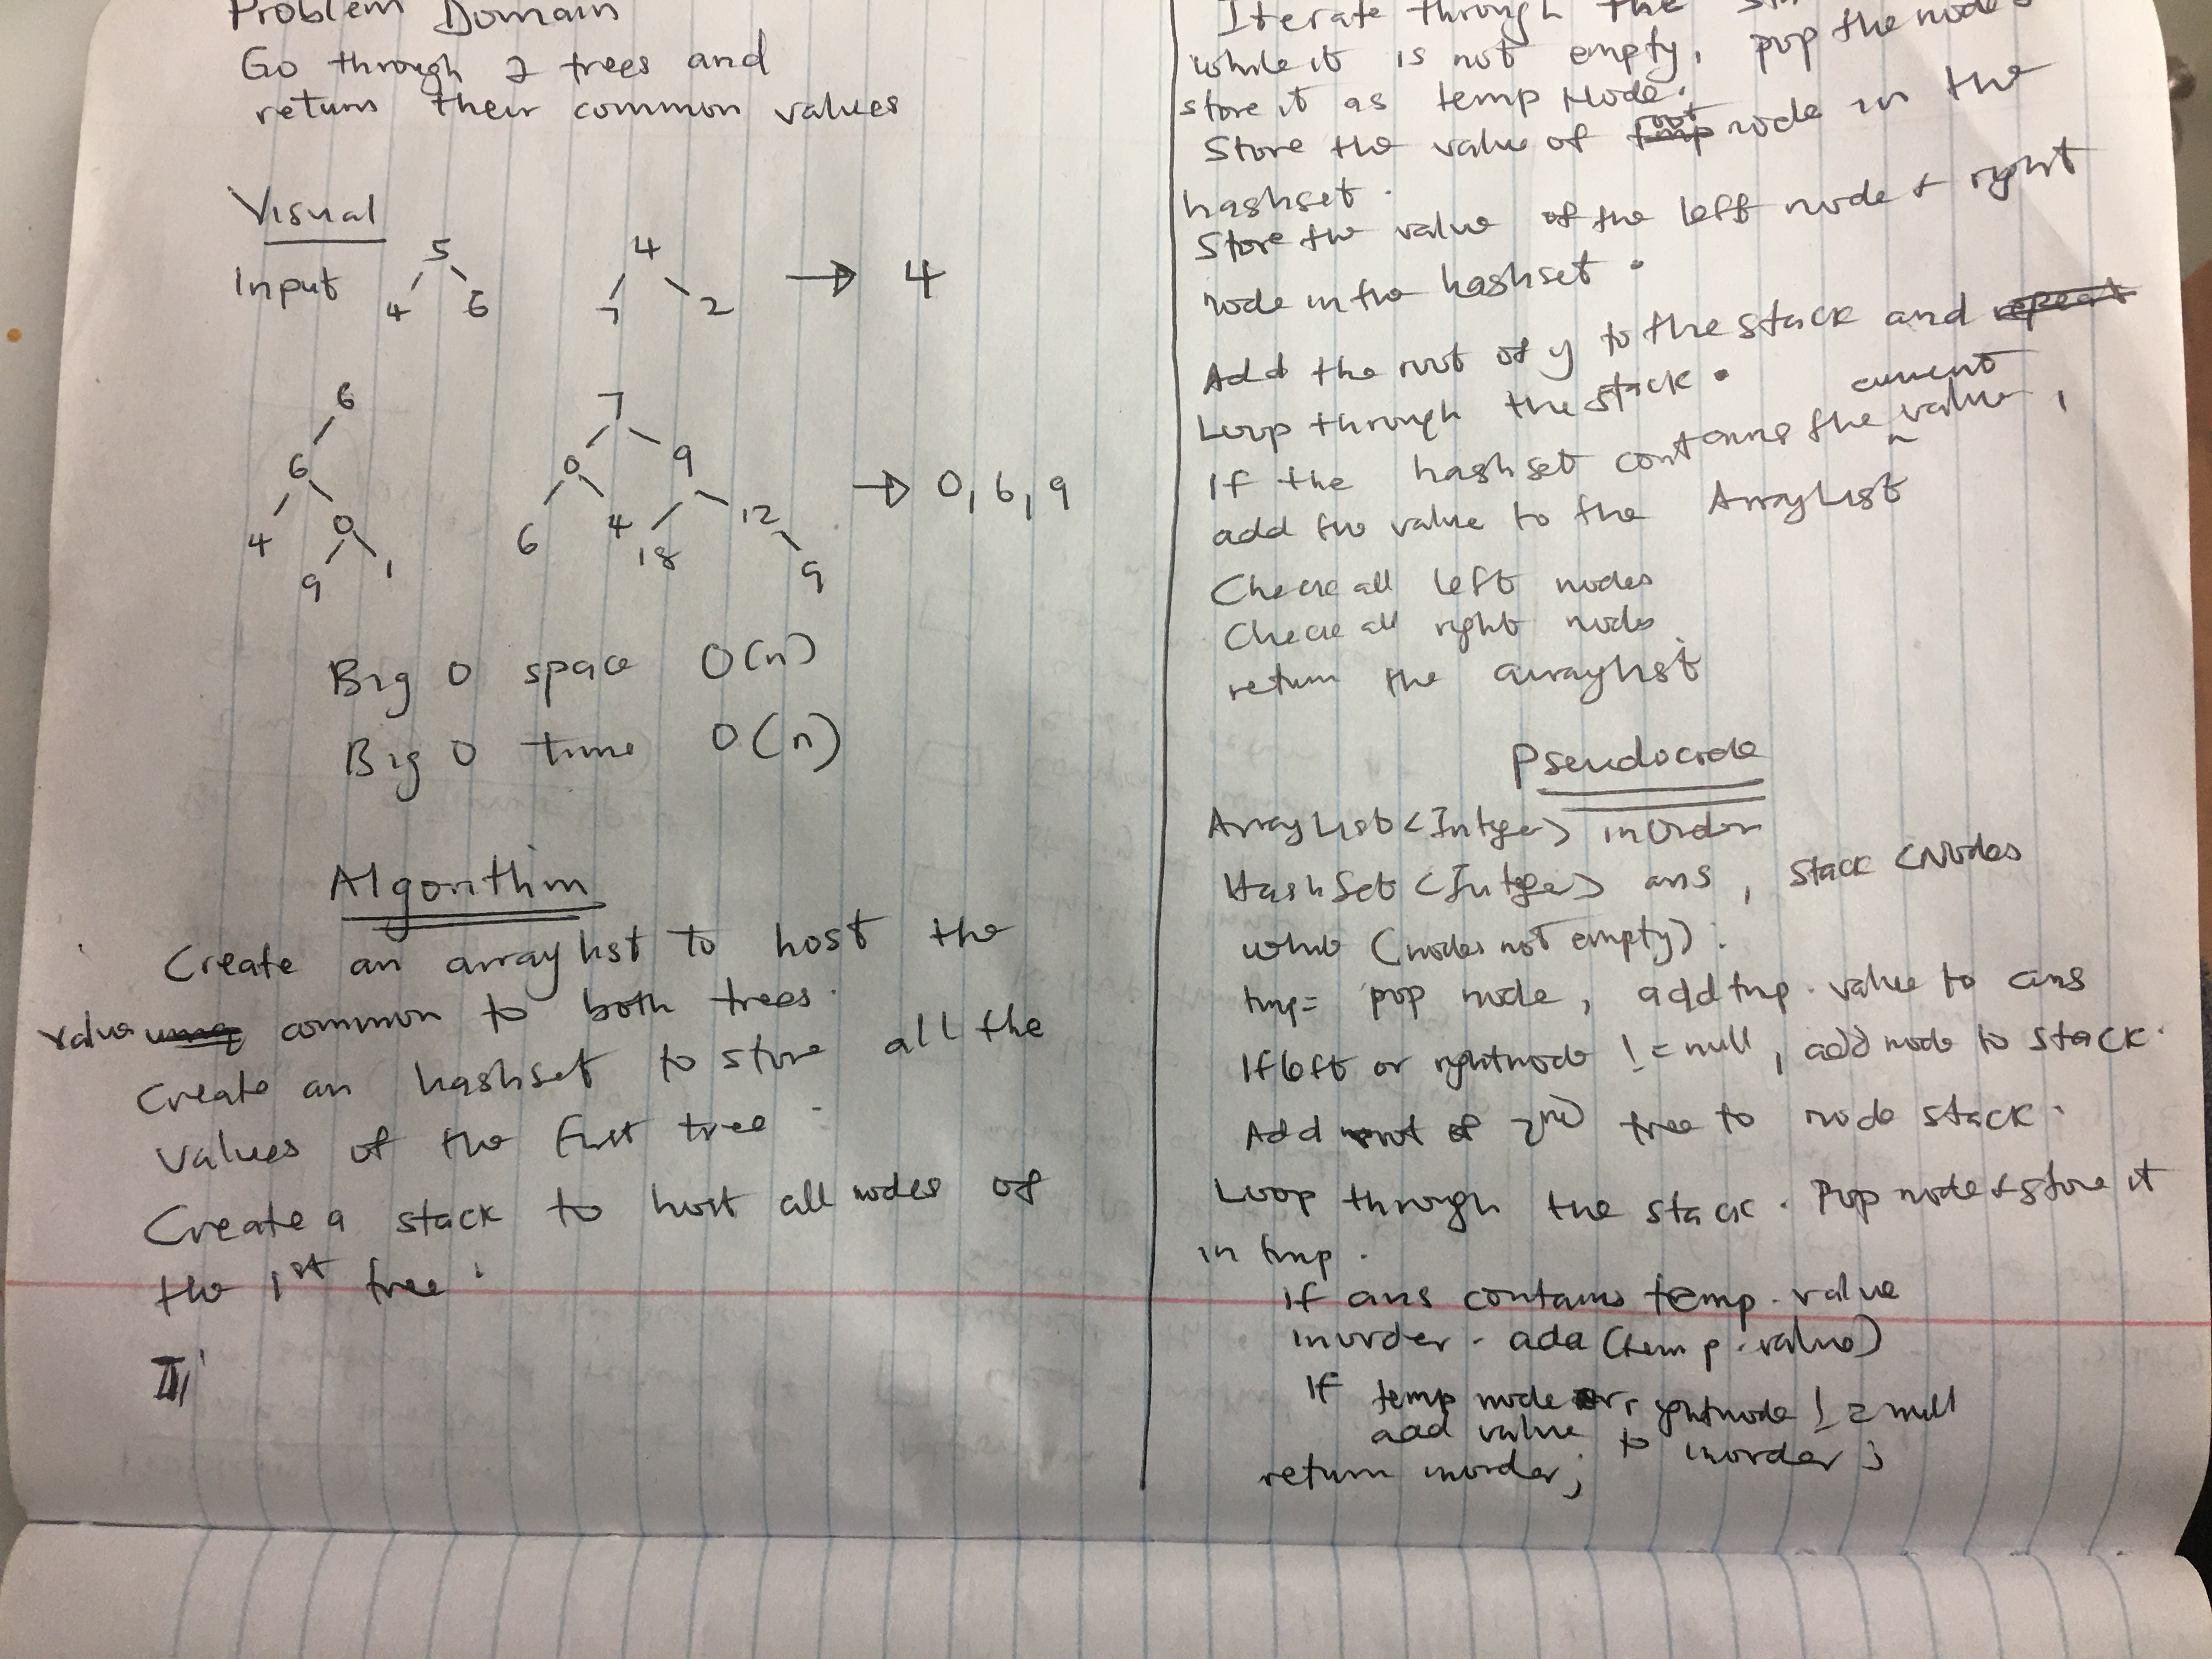 Problem Domain
Go through 2 trees and
return their common values
Visual
Input
5
4 6
4
7 2
→ 4
6
6
4 0
9 1
7
0 9
6 4 18 12
9
→ 0, 6, 9
Big O space O(n)
Big O time O(n)
Algorithm
Create an arraylist to host the
value common to both trees.
Create an hashset to store all the
values of the first tree.
Create a stack to host all nodes of
the 1st tree.
Iterate through the
while it is not empty, pop the node
store it as temp Node.
Store the value of root node in the
hashset.
Store the value of the left node + right
node in the hashset.
Add the root of y to the stack and
Loop through the stack.
If the hashset contains the current value,
add the value to the Arraylist
Check all left nodes
Check all right nodes
return the arraylist
Pseudocode
Arraylist<Integer> inOrder
HashSet<Integer> ans, stack <Nodes
while (nodes not empty).
tmp = pop node, add tmp.value to ans
If left or rightnode != null, add node to stack.
Add root of 2nd tree to node stack.
Loop through the stack. Pop node + store it
in tmp.
If ans contains temp.value
inorder.add(temp.value)
If temp node or rightnode != null
add value to inorder;
return inorder;